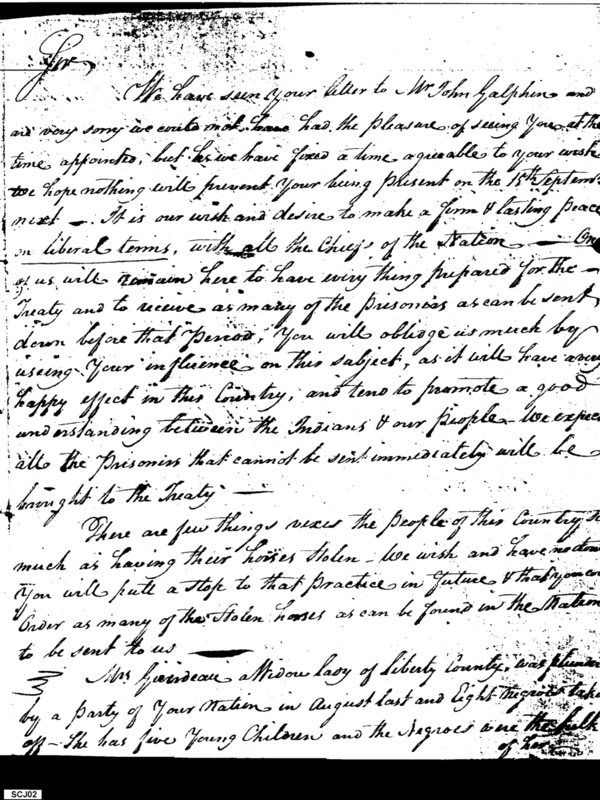 Sir
We have seen your letter to Mr John Galphin and
are very sorry we could not have had the pleasure of seeing You at the
time appointed, but as we have fixed a time agreeable to your wish
we hope nothing will prevent Your being Present on the 15th Septemr
next — It is our wish and desire to make a firm & lasting Peace
on liberal terms, with all the Chiefs of the Nation — One
of us will remain here to have every thing prepared for the —
Treaty and to receive as many of the Prisoners as can be sent
down before that Period, You will oblidge us much by
useing Your influence on this subject, as it will have a very
happy effect in this Country, and tend to promote a good
understanding between the Indians & our People — We expect
all the Prisoners that cannot be sent immediately will be
brought to the Treaty —
There are few things vexes the People of this Country so
much as having their horses Stolen — We wish and have no doubt
You will put a stop to that Practice in future & that you will
Order as many of the Stolen horses as can be found in the Nation
to be sent to us —
Mrs Girirdeau a Widow lady of Liberty County, was plunder
by a Party of Your Nation in August last and Eight Negroes take
off — She has five Young Children and the Negroes were the bulk
of her
SCJ02